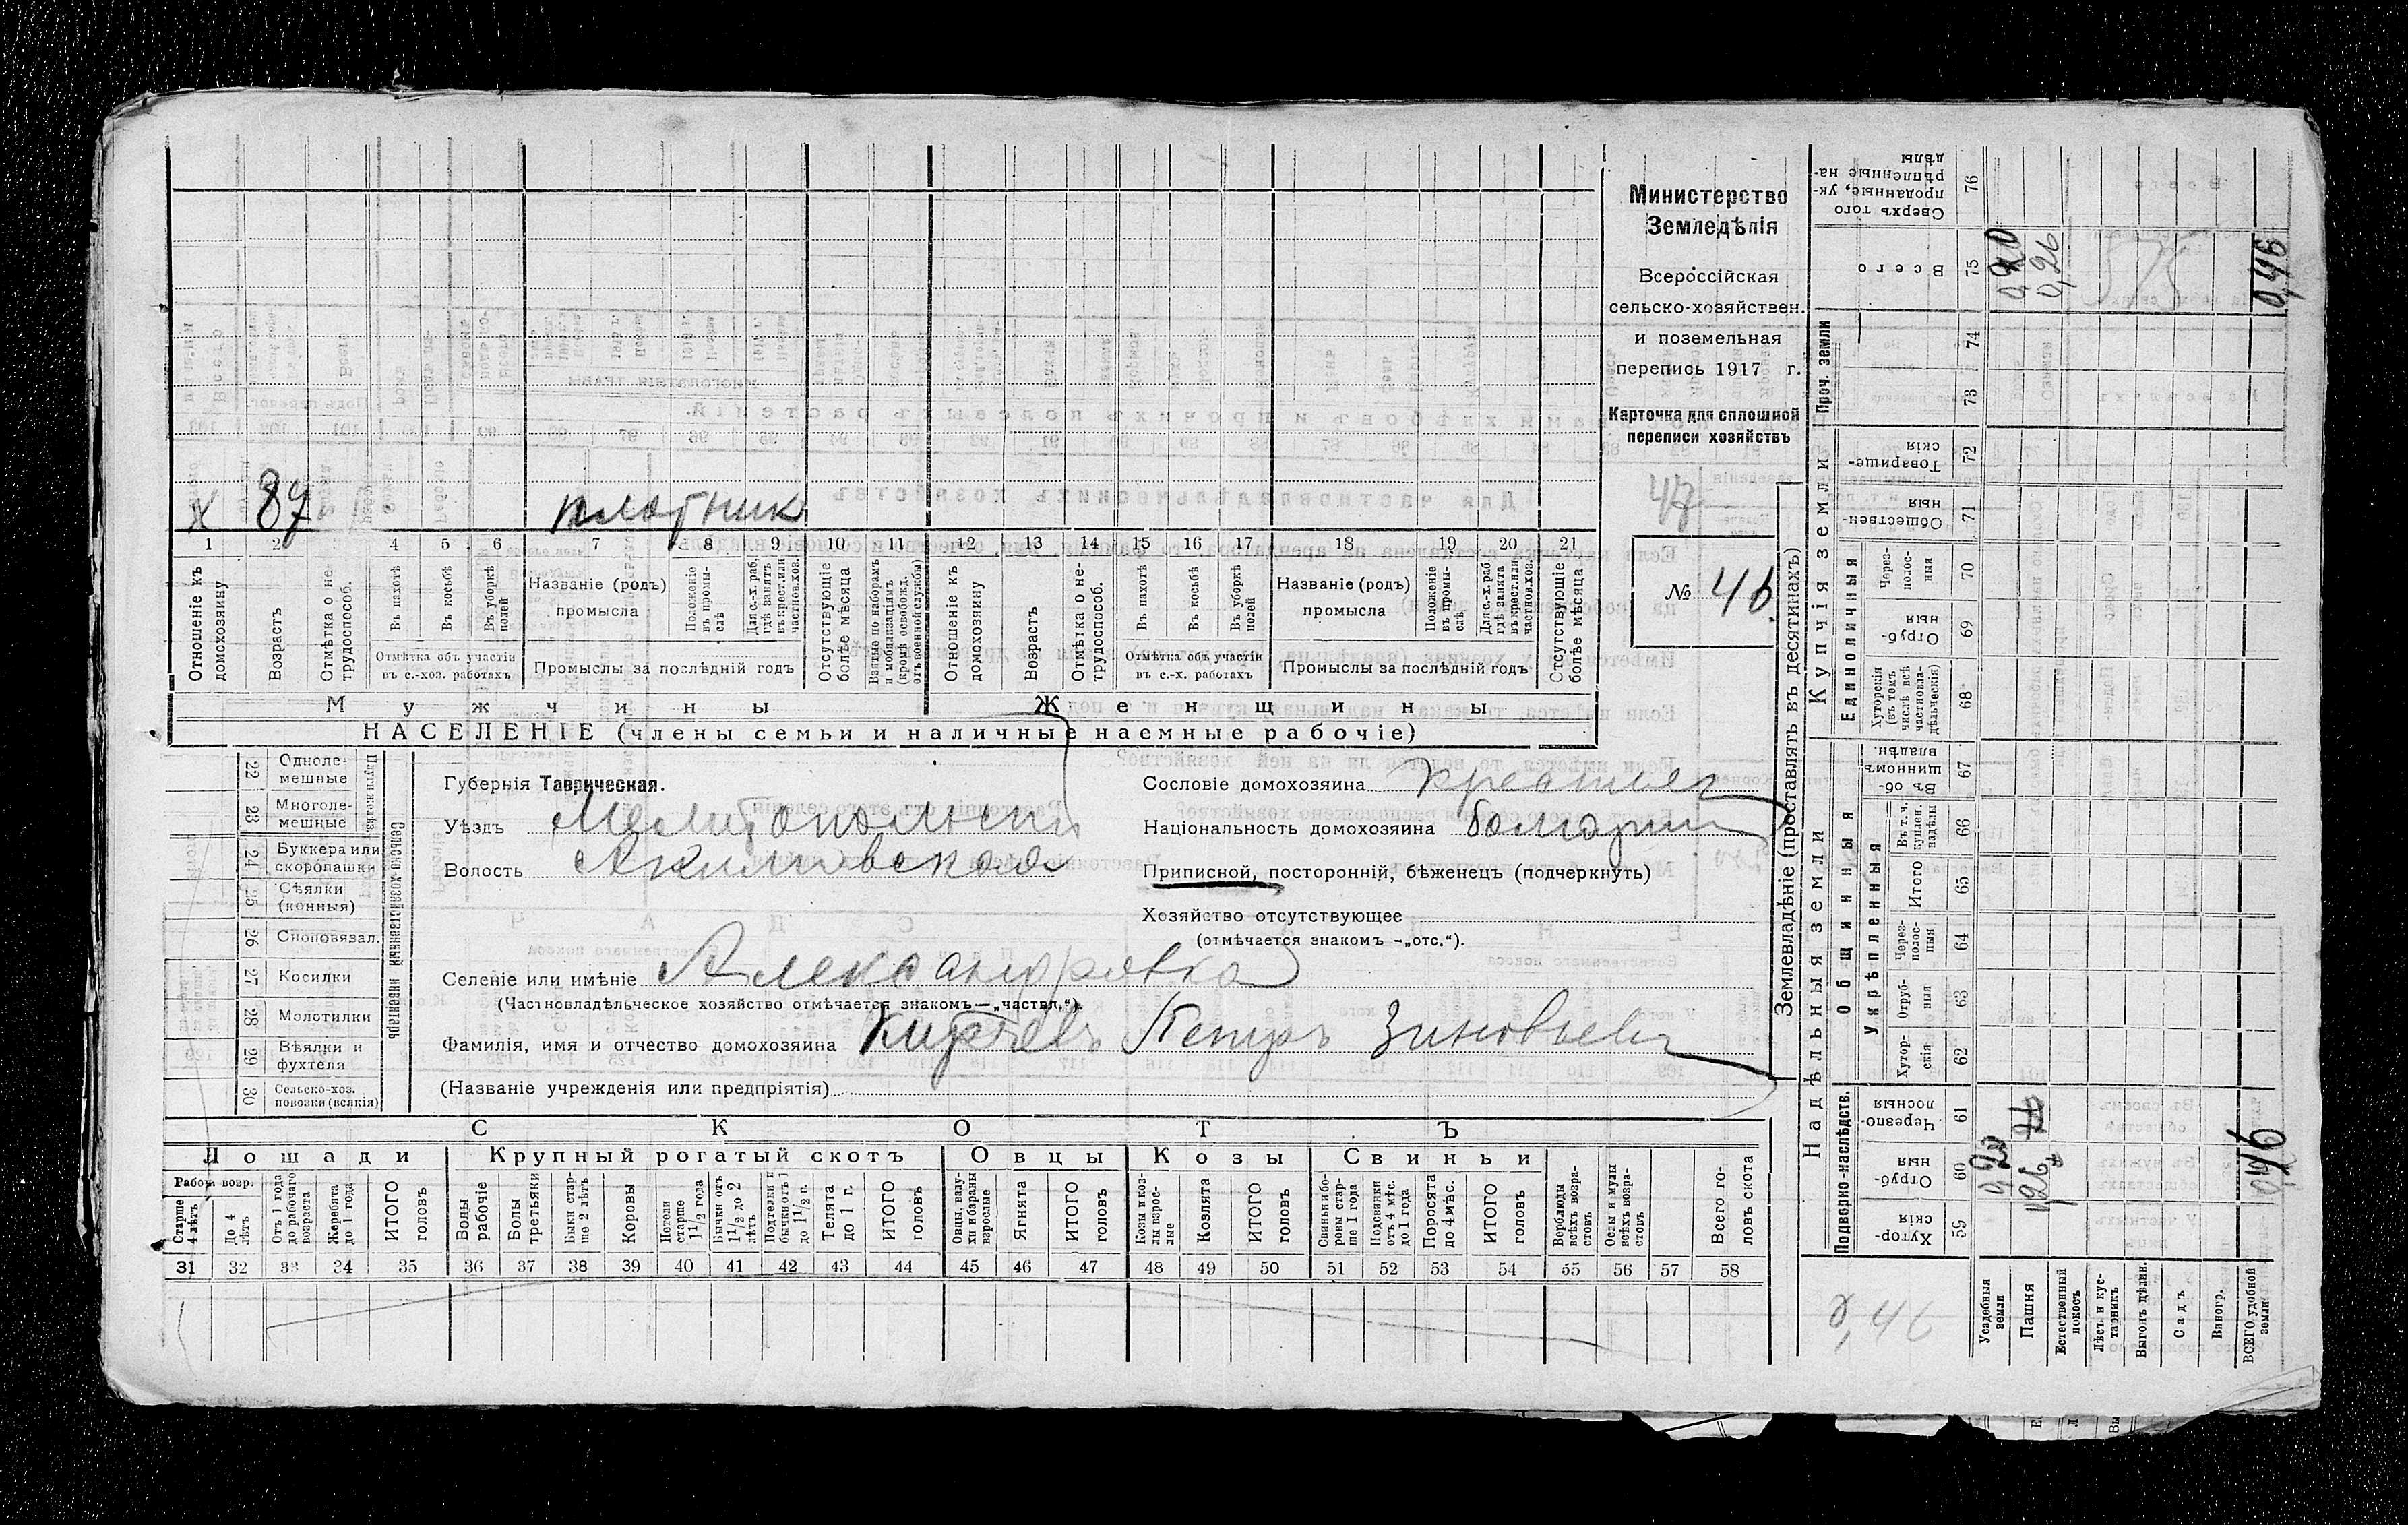 Министерство
Земледѣлія
Всероссійская
сельско-хозяйствен.
и поземельная
перепись 1917 г.
Карточка для сплошной
переписи хозяйствъ
47
№ 46
х 87 плотник
1 2 4 5 6 7 8 9 10 11 12 13 14 15 16 17 18 19 20 21
Отношеніе къ домохозяину
Возрастъ
Отмѣтка о нетрудоспособ.
Въ пахотѣ
Въ косьбѣ
Въ уборкѣ полей
Отмѣтка объ участіи
въ с.-хоз. работахъ
Названіе (родъ)
промысла
Положеніе въ промыслѣ
Для с.-х. раб. гдѣ занятъ въ крест. или частновл. хоз.
Промыслы за послѣдній годъ
Отсутствующіе болѣе мѣсяца
Взятые по наборамъ и мобилизаціямъ (кромѣ освобожд. отъ военной службы)
Отношеніе къ домохозяину
Возрастъ
Отмѣтка о нетрудоспособ.
Въ пахотѣ
Въ косьбѣ
Въ уборкѣ полей
Отмѣтка объ участіи
въ с.-х. работахъ
Названіе (родъ)
промысла
Положеніе въ промыслѣ
Промыслы за послѣдній годъ
Отсутствующіе болѣе мѣсяца
Мужчины Женщины
НАСЕЛЕНІЕ (члены семьи и наличные наемные рабочіе)
22 Одноле-
мешные
23 Многоле-
мешные
24 Буккера или
скоропашки
25 Сѣялки
(конныя)
26 Сноповязал.
27 Косилки
28 Молотилки
29 Вѣялки и
фухтеля
30 Сельско-хоз.
повозки (всякія)
Сельско-хозяйственный инвентарь
Губернія Таврическая.
Уѣздъ Мелитопольскій
Волость Акимовская
Сословіе домохозяина крестьян
Національность домохозяина болгарин
Приписной, посторонній, бѣженецъ (подчеркнуть)
Хозяйство отсутствующее
(отмѣчается знакомъ -„отс.“).
Селеніе или имѣніе Александровка
(Частновладѣльческое хозяйство отмѣчается знакомъ—„частвл.“).
Фамилія, имя и отчество домохозяина Петръ Зиновьевъ
(Названіе учрежденія или предпріятія)
СКОТЪ
Лошади Крупный рогатый скотъ Овцы Козы Свиньи
Рабоч. возр.
Старше 4 лѣтъ
До 4 лѣтъ
Отъ 1 года до рабочаго возраста
Жеребята до 1 года
ИТОГО головъ
Волы рабочіе
Волы третьяки
Быки старше 2 лѣтъ
Коровы
Нетели старше 1 1/2 года
Бычки отъ 1 1/2 до 2 лѣтъ
Подтелки и бычки отъ 1 до 1 1/2 г.
Телята до 1 г.
ИТОГО головъ
Овцы, валухи и бараны взрослые
Ягнята
ИТОГО головъ
Козы и козлы взрослые
Козлята
ИТОГО головъ
Свиньи и боровы старше 1 года
Подсвинки отъ 4 мѣс. до 1 года
Поросята до 4 мѣс.
ИТОГО головъ
Верблюды всѣхъ возрастовъ
Ослы и мулы всѣхъ возрастовъ
Всего головъ скота
31 32 33 34 35 36 37 38 39 40 41 42 43 44 45 46 47 48 49 50 51 52 53 54 55 56 57 58
Землевладѣніе (проставлять въ десятинахъ)
Надѣльныя земли
Купчія земли
Проч. земли
Подворно-наслѣдств.
Общинныя
Укрѣпленныя
Единоличныя
Хуторскія 59
Отрубныя 60
Черезполосныя 61
Хуторскія 62
Отрубныя 63
Черезполосныя 64
Итого 65
Въ т. ч. купчен. надѣлы 66
Въ общинномъ владѣн. 67
Хуторскія (въ томъ числѣ всѣ частновладѣльческія) 68
Отрубныя 69
Черезполосныя 70
Общественныя 71
Товарищескія 72
73
74
Всего 75
Сверхъ того проданные, укрѣпленные надѣлы 76
Усадебныя земли 0,20
Пашня 0,26
Естественный покосъ
Лѣсъ и кустарникъ
Выгонъ цѣлин.
Садъ
Виногр.
ВСЕГО удобной земли 0,46
0,46